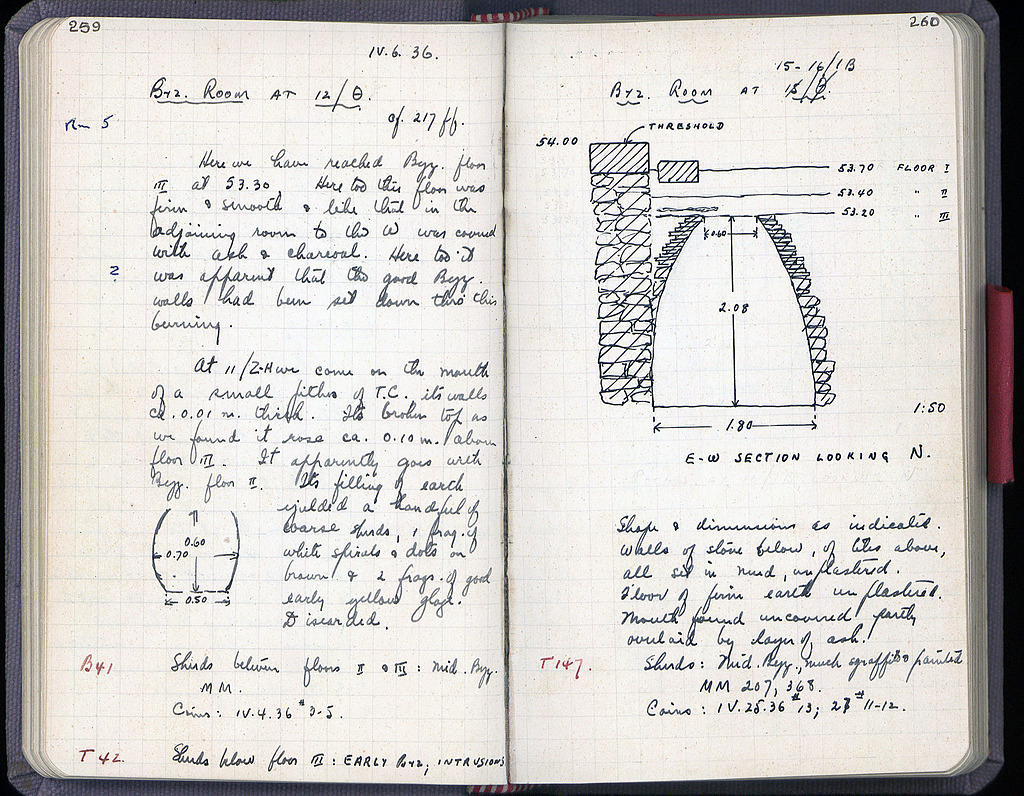 259
IV.6.36.
Byz. Room at 12/Θ.
Rm 5
cf. 217 ff.
Here we have reached Byz. floor
III at 53.30. Here too this floor was
firm & smooth & like that in the
adjoining room to the W was covered
with ash & charcoal. Here too it
2
was apparent that the good Byz.
walls had been set down thro this
burning.
At 11/Z-H we come on the mouth
of a small pithos of T.C. its walls
ca. 0.01 m. thick. Its broken top as
we found it rose ca. 0.10 m. above
floor III. It apparently goes with
Byz. floor II. Its filling of earth
yielded a handful of
coarse sherds, 1 frag. of
white spirals & dots on
brown & 2 frags. of good
early yellow glaze.
Discarded.
0.60
0.70
0.50
B41
Sherds between floors II & III: mid. Byz.
MM.
Coins: IV.4.36 #3-5.
T42.
Sherds below floor III: EARLY BYZ; INTRUSIONS
260
15-16/1B
Byz. Room at 15/
THRESHOLD
54.00
53.70 FLOOR I
53.40 " II
53.20 " III
0.60
2.08
1.80
1:50
E-W SECTION LOOKING N.
Shape & dimensions as indicated.
Walls of stone below, of tiles above,
all set in mud, unplastered.
Floor of firm earth unplastered.
Mouth found uncovered partly
overlaid by layer of ash.
T147.
Sherds: Mid. Byz., much sgraffito & painted
MM 207, 368.
Coins: IV.25.36 #13; 27 #11-12.